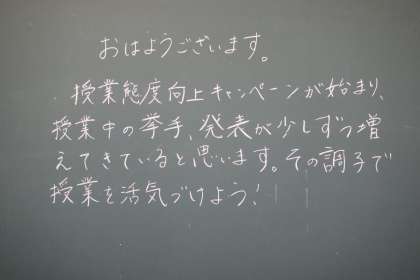 おはようございます。
授業態度向上キャンペーンが始まり、
授業中の挙手、発表が少しずつ増
えてきていると思います。その調子で
授業を活気づけよう!